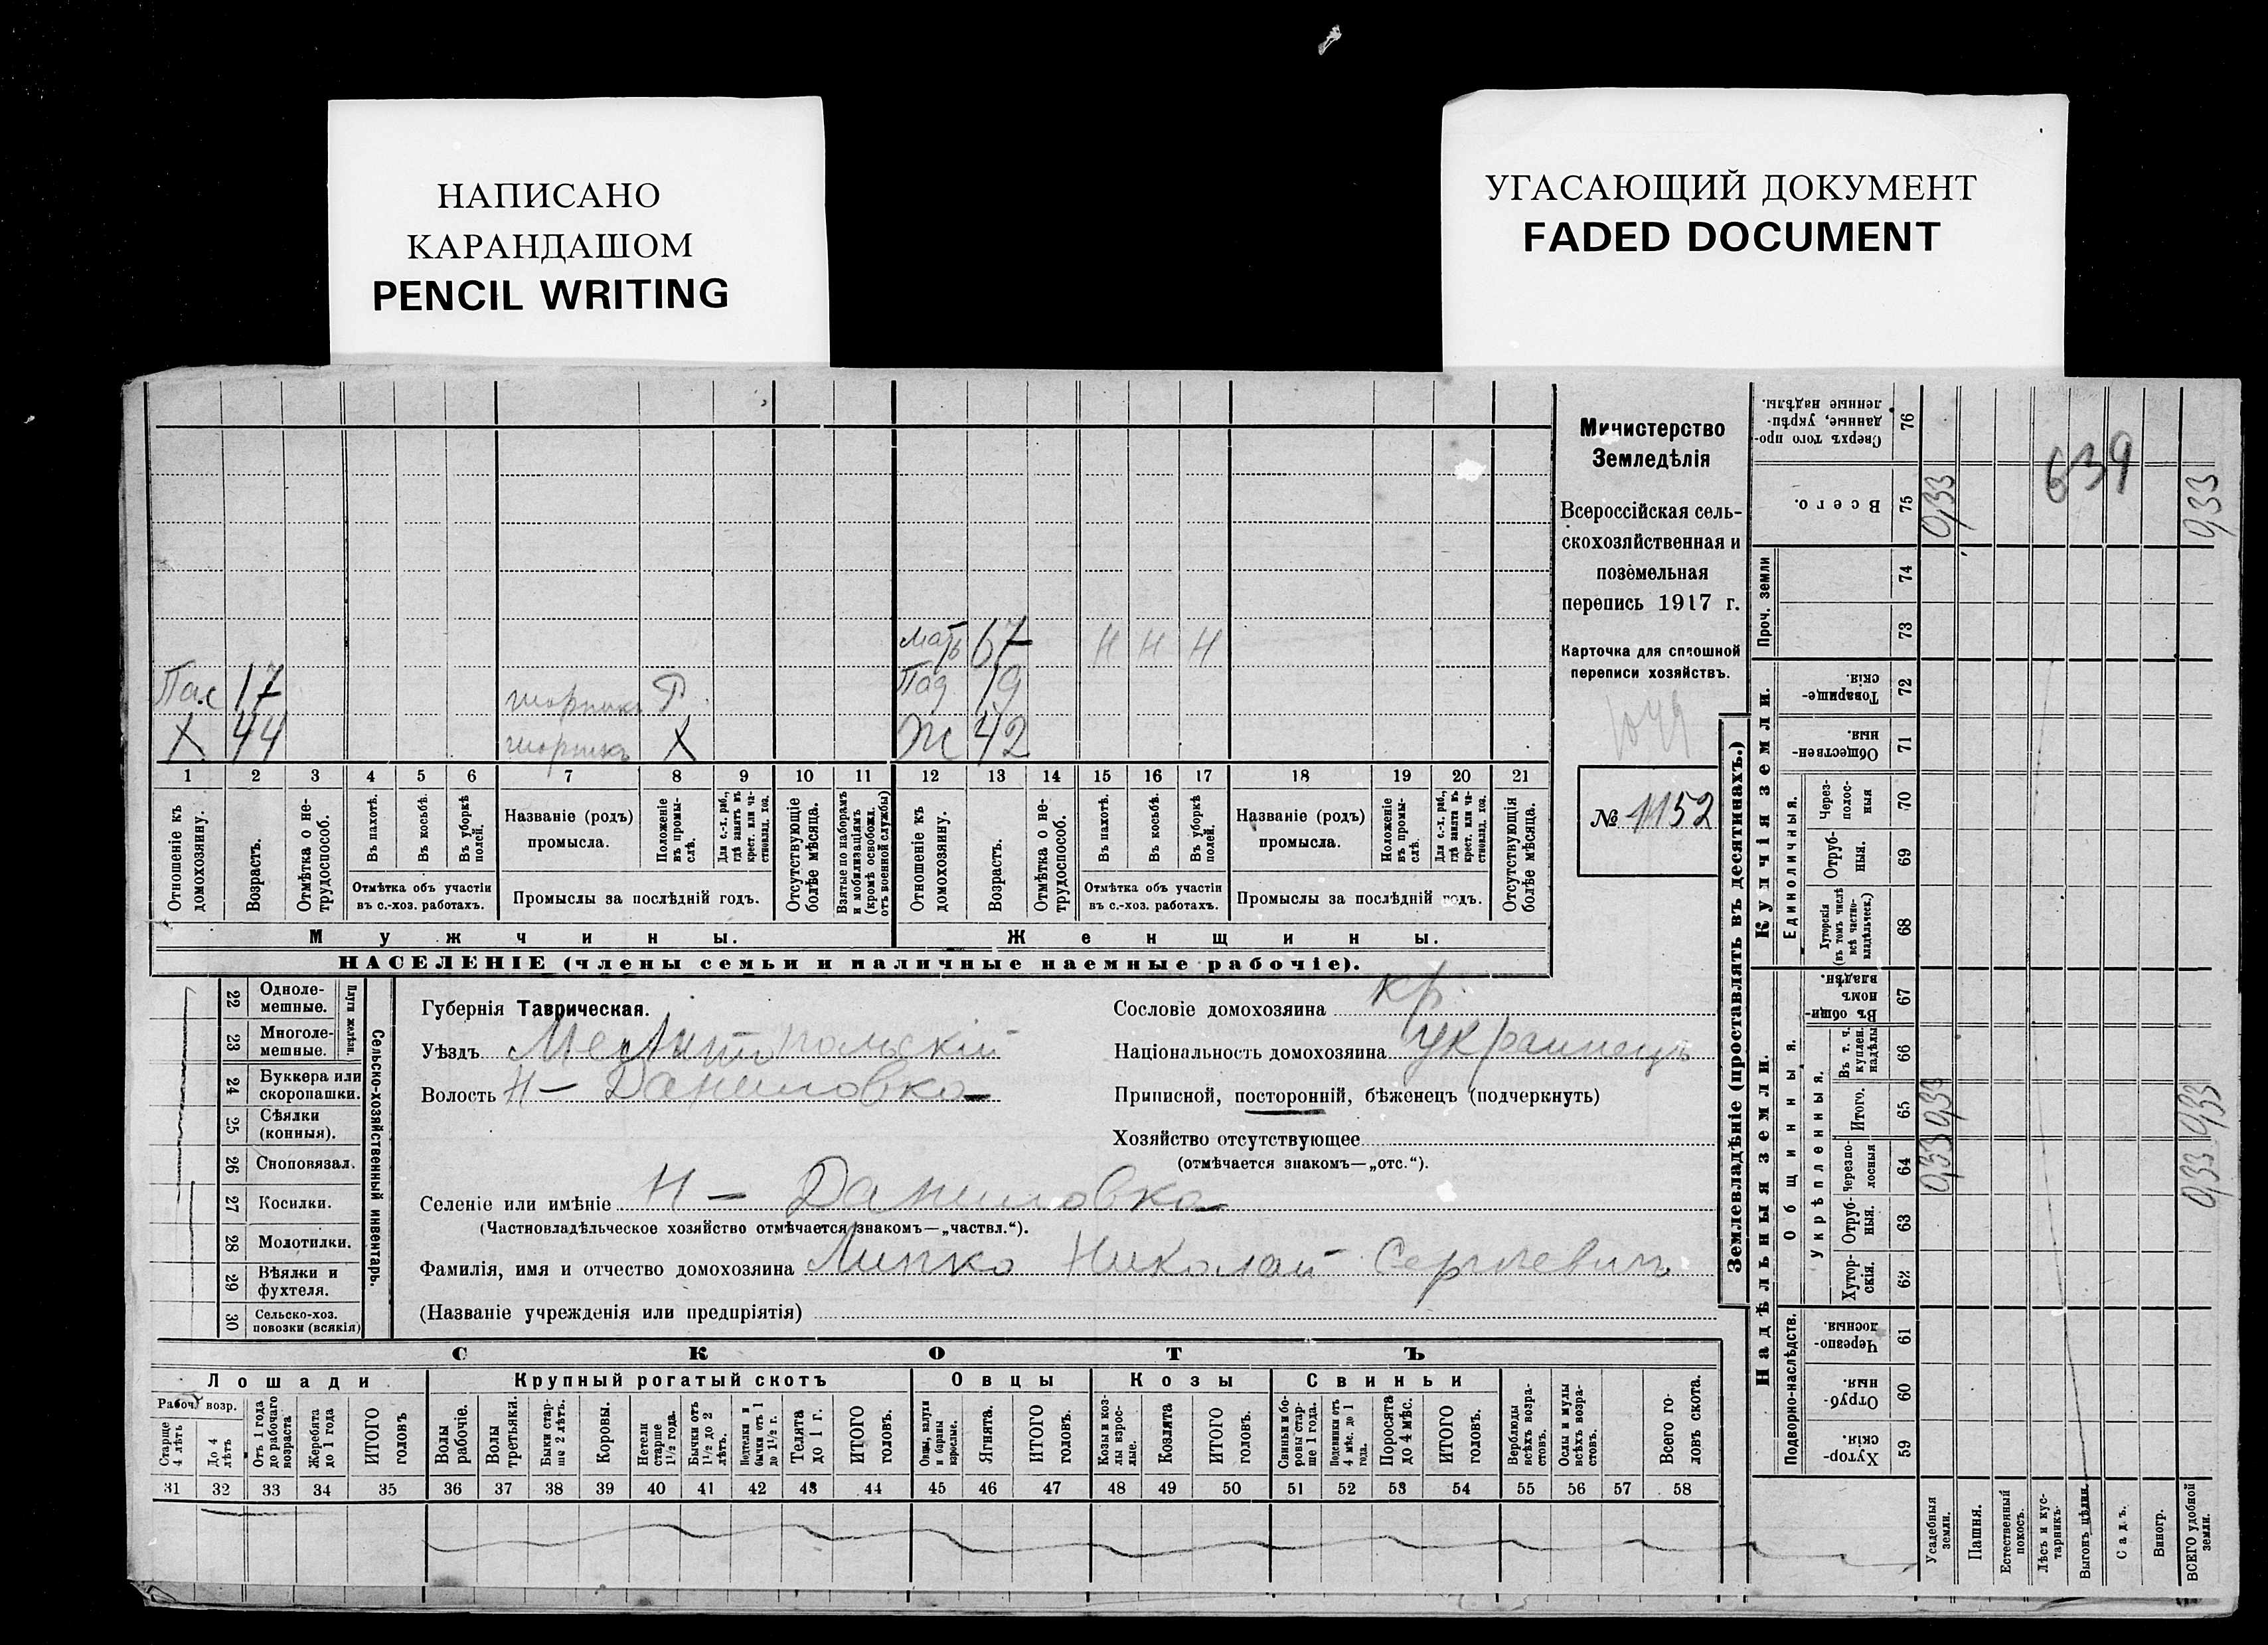 НАПИСАНО
КАРАНДАШОМ
PENCIL WRITING
УГАСАЮЩИЙ ДОКУМЕНТ
FADED DOCUMENT
Министерство
Земледѣлія
Всероссійская сель-
скохозяйственная и
поземельная
перепись 1917 г.
Карточка для сплошной
переписи хозяйствъ.
№ 1152
мать 67 Н Н Н
Пас 17 шорникъ Р Пад 19
Х 44 шорникъ Х Ж 42
1 2 3 4 5 6 7 8 9 10 11 12 13 14 15 16 17 18 19 20 21
Отношеніе къ домохозяину.
Возрастъ.
Отмѣтка о не-трудоспособ.
Въ пахотѣ.
Въ косьбѣ.
Въ уборкѣ полей.
Отмѣтка объ участіи
въ с.-хоз. работахъ.
Названіе (родъ)
промысла.
Положеніе въ промы-слѣ.
Для с.-х. раб., гдѣ занятъ въ крест. или ча-стновлад. хоз.
Промыслы за послѣдній годъ.
Отсутствующіе болѣе мѣсяца.
Взятые по наборамъ и мобилизаціямъ (кромѣ освобожд. отъ военной службы)
Отношеніе къ домохозяину.
Возрастъ.
Отмѣтка о не-трудоспособ.
Въ пахотѣ.
Въ косьбѣ.
Въ уборкѣ полей.
Отмѣтка объ участіи
въ с.-хоз. работахъ.
Названіе (родъ)
промысла.
Положеніе въ промы-слѣ.
Для с.-х. раб., гдѣ занята въ крест. или ча-стновлад. хоз.
Промыслы за послѣдній годъ.
Отсутствующія болѣе мѣсяца.
Мужчины.
Женщины.
НАСЕЛЕНІЕ (члены семьи и наличные наемные рабочіе).
22 Одноле-мешные.
23 Многоле-мешные.
Плуги желѣзн.
24 Буккера или скоропашки.
25 Сѣялки (конныя).
26 Сноповязал.
27 Косилки.
28 Молотилки.
29 Вѣялки и фухтеля.
30 Сельско-хоз. повозки (всякія)
Сельско-хозяйственный инвентарь.
Губернія Таврическая.
Уѣздъ Мелитопольскій
Волость Н-Даниловка
Сословіе домохозяина кр.
Національность домохозяина украинецъ
Приписной, посторонній, бѣженецъ (подчеркнуть)
Хозяйство отсутствующее
(отмѣчается знакомъ—„отс.“).
Селеніе или имѣніе Н - Даниловка
(Частновладѣльческое хозяйство отмѣчается знакомъ—„частвл.“).
Фамилія, имя и отчество домохозяина Липко Николай Сергѣевичъ
(Названіе учрежденія или предпріятія)
СКОТЪ
Лошади Крупный рогатый скотъ Овцы Козы Свиньи
Рабоч. возр.
Старше 4 лѣтъ
До 4 лѣтъ
Отъ 1 года до рабочаго возраста
Жеребята до 1 года
ИТОГО головъ
Волы рабочіе.
Волы третьяки.
Быки стар-ше 2 лѣтъ.
Коровы.
Нетели старше 1½ года.
Бычки отъ 1½ до 2 лѣтъ.
Подтелки и бычки отъ 1 до 1½ г.
Телята до 1 г.
ИТОГО головъ.
Овцы, валухи и бараны взрослые.
Ягнята.
ИТОГО головъ.
Козы и коз-лы взрос-лые.
Козлята
ИТОГО головъ.
Свиньи и бо-ровы стар-ше 1 года.
Подсвинки отъ 4 мѣс. до 1 года.
Поросята до 4 мѣс.
ИТОГО головъ.
Верблюды всѣхъ возра-стовъ.
Ослы и мулы всѣхъ возра-стовъ.
Всего го-ловъ скота.
31 32 33 34 35 36 37 38 39 40 41 42 43 44 45 46 47 48 49 50 51 52 53 54 55 56 57 58
Землевладѣніе (проставлять въ десятинахъ.)
Купчія земли.
Надѣльныя земли.
Сверхъ того про-данные, укрѣп-ленные надѣлы. 76
639
Всего. 75 0,33 0,33
Проч. земли 74
73
Товарище-скія. 72
Обществен-ныя. 71
Единоличныя.
Через-полос-ныя 70
Отруб-ныя. 69
Хуторскія (въ томъ числѣ всѣ частно-владѣльческ.) 68
Общинныя.
Въ общин-номъ владѣн. 67
Укрѣпленныя.
Въ т. ч. куплен. надѣлы 66
Итого. 65 0,33 0,33
Черезпо-лосныя 64 0,33 0,33
Отруб-ныя. 63
Хутор-скія. 62
Подворно-наслѣдств.
Черезпо-лосныя. 61
Отруб-ныя. 60
Хутор-скія. 59
Усадебныя земли.
Пашня.
Естественный покосъ.
Лѣсъ и кус-тарникъ.
Выгонъ цѣлин.
Садъ.
Виногр.
ВСЕГО удобной земли.